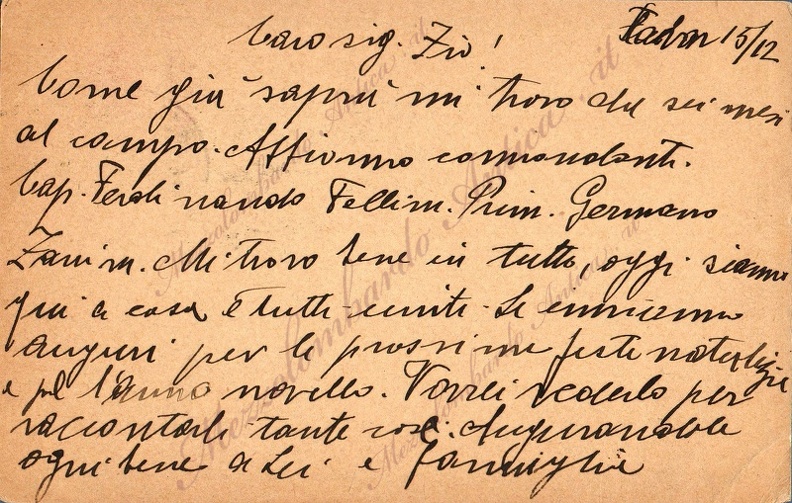 Caro sig. Zio! 15/12
Come già saprà mi trovo da sei mesi
al campo. Abbiamo comandanti.
Cap. Ferdinando Fellin. Prim. Germano
Zanin. Mi trovo bene in tutto, oggi siamo
qui a casa e tutti uniti. Le inviamo
auguri per le prossime feste natalizie
e pel l'anno novello. Vorrei vederlo per
raccontarli tante cose. Augurandole
ogni bene a Lei e famiglia
Mezzolombardo Antica .it
Mezzolombardo Antica .it
Mezzolombardo Antica .it